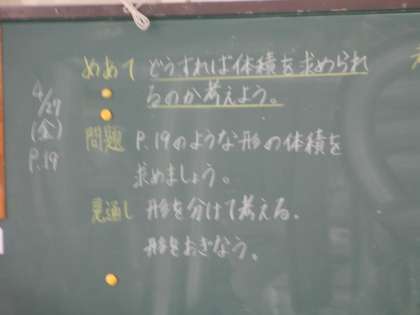 めあて どうすれば体積を求められ
るのか考えよう。
4/27
(金)
P.19
問題 P.19のような形の体積を
求めましょう。
見通し 形を分けて考える。
形をおぎなう。